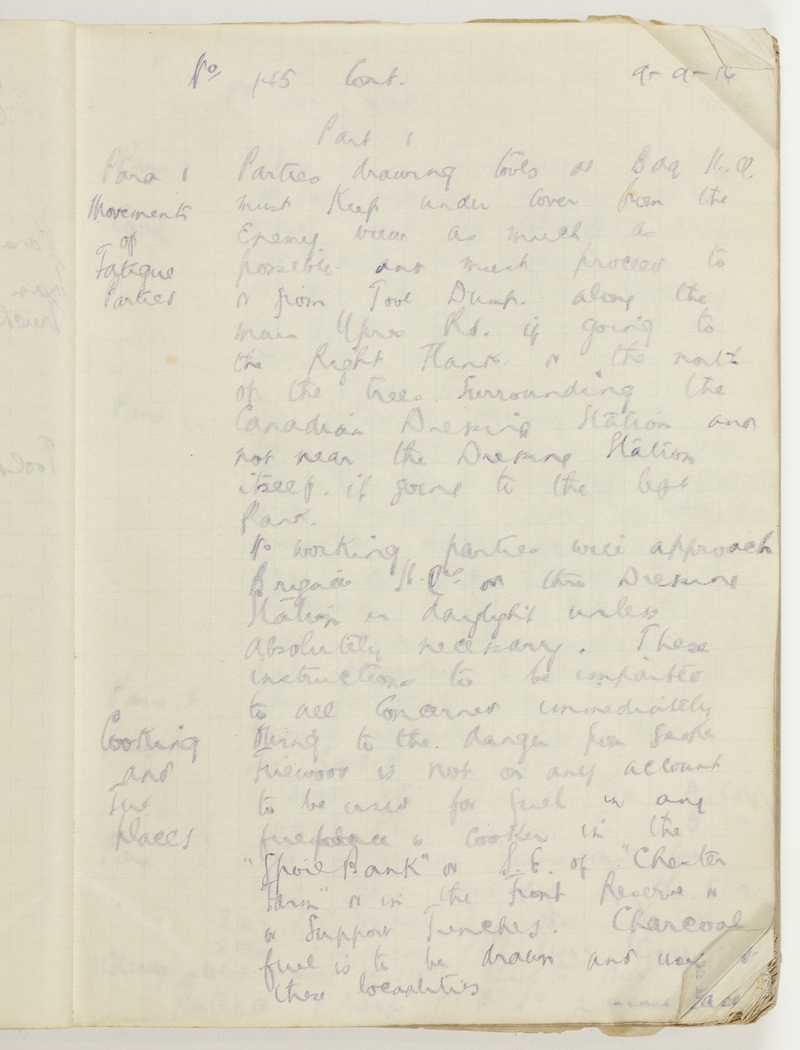 No 145 Cont. 9-9-16
Part 1
Para 1 Parties drawing tools at Bdq H.Q.
Movements must Keep under cover from the
of Enemy view as much as
Fatigue possible and must proceed to
Parties or from Tool Dump. along the
main Ypres Rd. if going to
the Right Flank. or the north
of the trees Surrounding the
Canadian Dressing Station and
not near the Dressing Station
itself. if going to the left
Flank.
No working parties will approach
Brigade H.Qrs or this Dressing
Station in daylight unless
absolutely necessary. These
instructions to be imparted
to all Concerned immediately
Cooking Owing to the danger from Smoke
and Firewood is not on any account
Fire to be used for fuel in any
places fireplace or cooker in the
"Spoil Bank" or S.E. of "Chester
Farm" or in the Front Reserve or
or Support Trenches. Charcoal
fuel is to be drawn and used
these localities